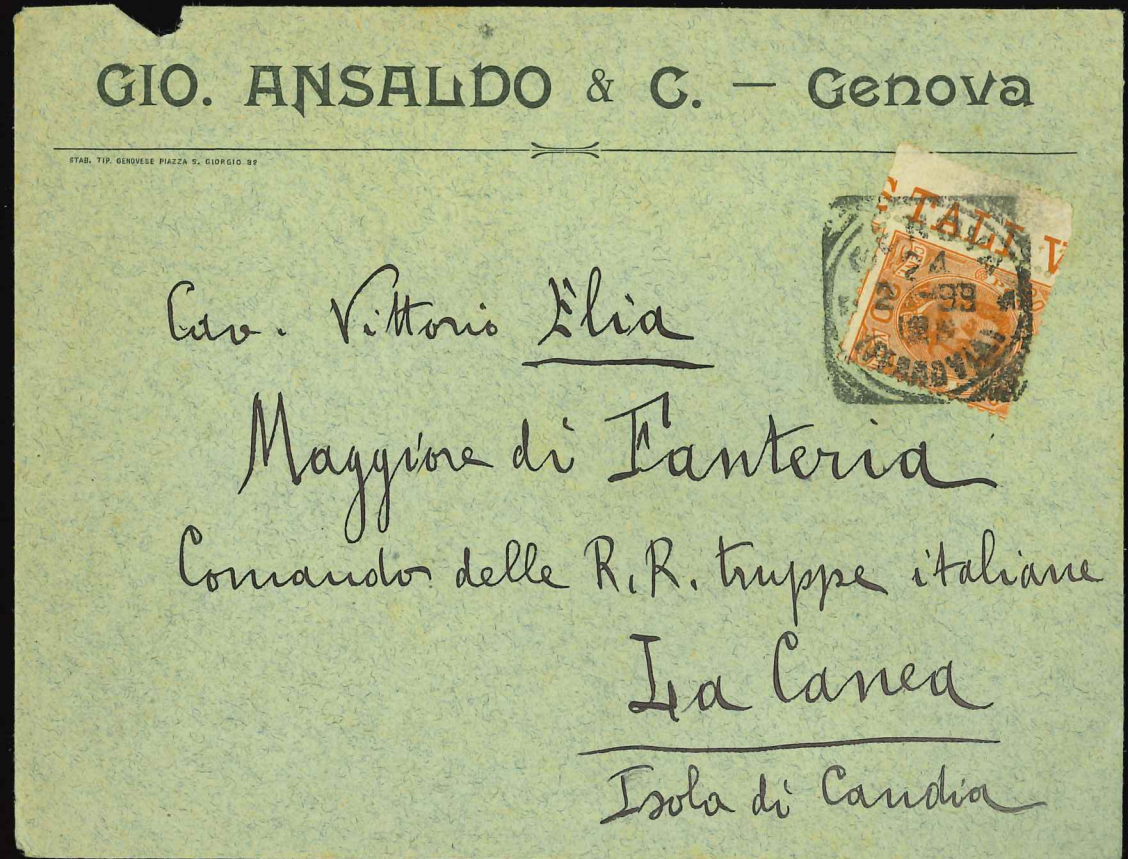 GIO. ANSALDO & C. — Genova
STAB. TIP. GENOVESE PIAZZA S. GIORGIO 32
TALI V
Cav. Vittorio Elia
Maggiore di Fanteria
Comando delle R.R. truppe italiane
La Canea
Isola di Candia